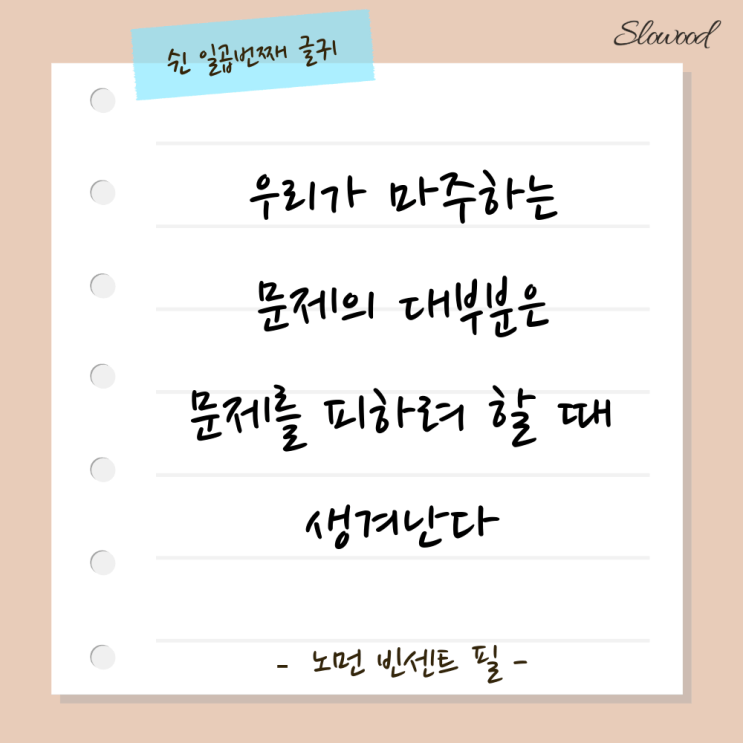 Slowood
쉰 일곱번째 글귀
우리가 마주하는
문제의 대부분은
문제를 피하려 할 때
생겨난다
- 노먼 빈센트 필 -